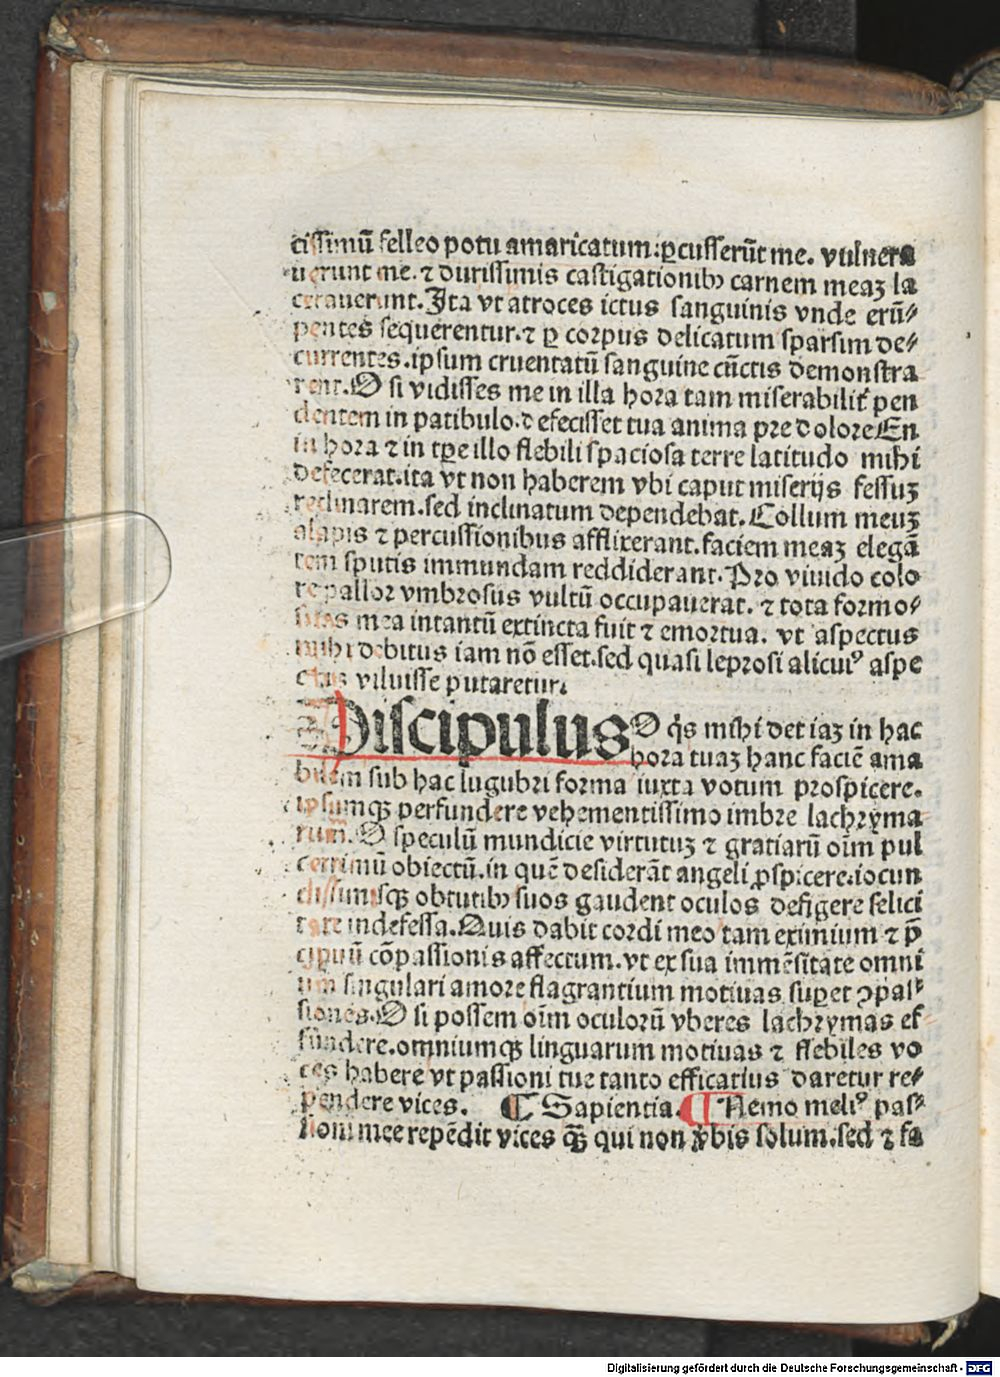 tissimū felleo potu amaricatum: ꝑcusserūt me. vulnera
uerunt me. ⁊ durissimis castigationibꝫ carnem meaꝫ la
cerauerunt. Ita vt atroces ictus sanguinis vnde erū⸗
pentes sequerentur. ⁊ ꝑ corpus delicatum sparsim de⸗
currentes. ipsum cruentatū sanguine cūctis demonstra
rent. O si vidisses me in illa hora tam miserabilit᷑ pen
dentem in patibulo. defecisset tua anima pre dolore En
in hora ⁊ in tꝑe illo flebili spaciosa terre latitudo mihi
defecerat. ita vt non haberem vbi caput miserijs fessuꝫ
reclinarem. sed inclinatum dependebat. Collum meuꝫ
alapis ⁊ percussionibus afflixerant. faciem meaꝫ elegā
tem sputis immundam reddiderant. Pro viuido colo
re pallor vmbrosus vultū occupauerat. ⁊ tota formo⸗
sitas mea intantū extincta fuit ⁊ emortua. vt aspectus
mihi debitus iam nō esset. sed quasi leprosi alicuiꝰ aspe
ctus viluisse putaretur.
Discipulus O q̇s mihi det iaꝫ in hac
hora tuaꝫ hanc faciē ama
bilem sub hac lugubri forma iuxta votum prospicere.
ipsumqꝫ perfundere vehementissimo imbre lachryma
rum. O speculū mundicie virtutuꝫ ⁊ gratiarū oīm pul
cerrimū obiectū. in quē desiderāt angeli ꝓspicere. iocun
dissimisqꝫ obtutibꝫ suos gaudent oculos defigere felici
tate indefessa. Quis dabit cordi meo tam eximium ⁊ p̄
cipuū cōpassionis affectum. vt ex sua immēsitate omni
um singulari amore flagrantium motiuas suꝑet ꝯpas⸗
siones. O si possem oīm oculorū vberes lachrymas ef
fundere. omniumqꝫ linguarum motiuas ⁊ flebiles vo
ces habere vt passioni tue tanto efficatius daretur re⸗
pendere vices. ¶ Sapientia. ¶ Nemo meliꝰ pas⸗
sioni mee repēdit vices qꝫ̄ qui non v̄bis solum. sed ⁊ fa
Digitalisierung gefördert durch die Deutsche Forschungsgemeinschaft - DFG